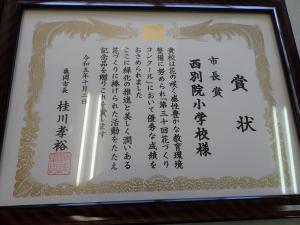 賞状
市長賞
西別院小学校様
貴校は花の咲く感性豊かな教育環境
整備に努められ「第三十回花づくり
コンクール」において優秀な成績を
おさめられました
ここに緑化の推進と美しく潤いある
花づくりに捧げられた活動をたたえ
記念品を贈りこれを賞します
令和五年十月
亀岡市長
桂川孝裕